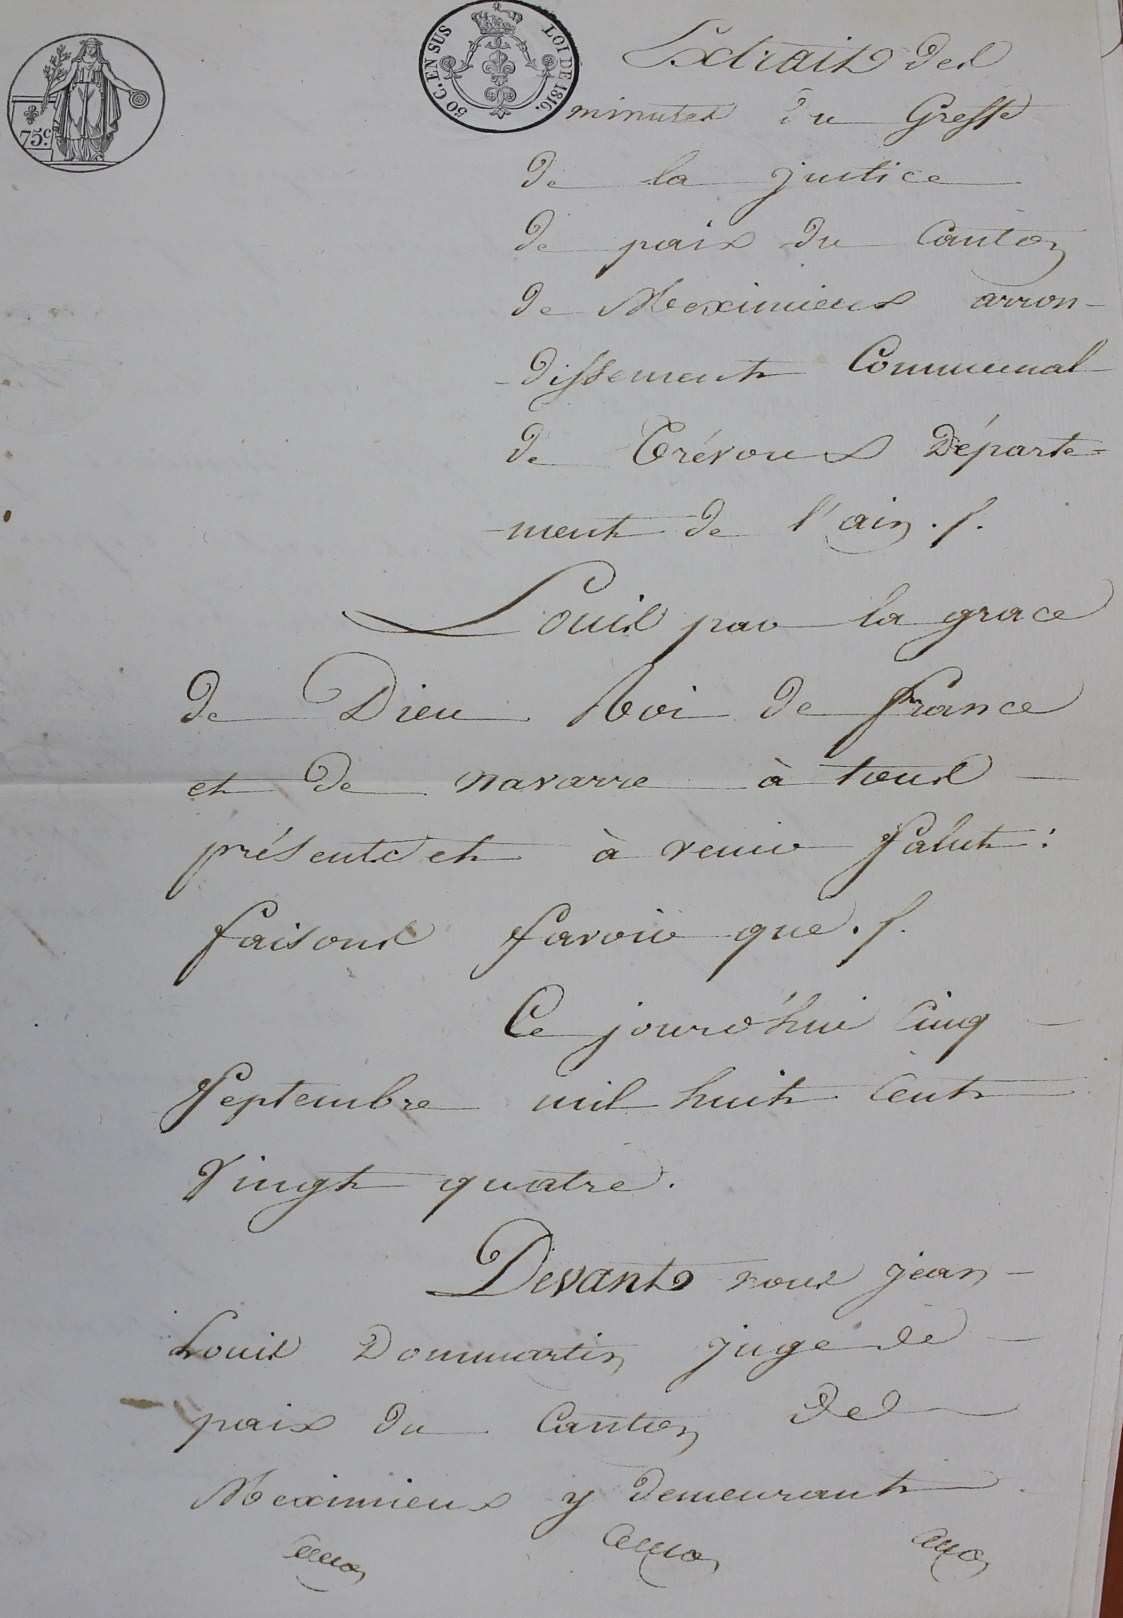 75c.
50 C. EN SUS LOI DE 1816.
Extrait des
minutes du Greffe
de la justice
de paix du Canton
de Meximieux arron-
-dissement Communal
de Trévoux Départe=
-ment de l'ain ./.
Louis par la grace
de Dieu Roi de france
et de navarre à tous
présents et à venir Salut :
faisons Savoir que ./.
Ce jourd'hui Cinq
Septembre mil huit Cent
Vingt quatre.
Devant nous jean
Louis Dommartin juge de
paix du Canton de
Meximieux y demeurant